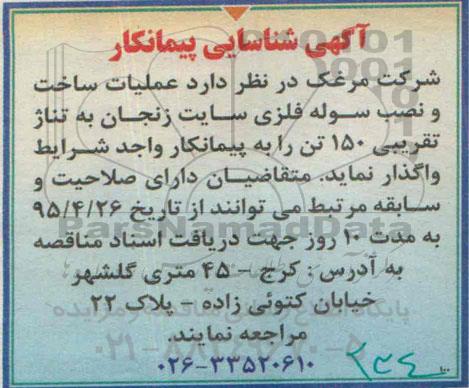 آگهی شناسایی پیمانکار
شرکت مرغک در نظر دارد عملیات ساخت
و نصب سوله فلزی سایت زنجان به تناژ
تقریبی ۱۵۰ تن را به پیمانکار واجد شرایط
واگذار نماید. متقاضیان دارای صلاحیت و
سابقه مرتبط می توانند از تاریخ ۹۵/۴/۲۶
به مدت ۱۰ روز جهت دریافت اسناد مناقصه
به آدرس : کرج - ۴۵ متری گلشهر
خیابان کتوئی زاده - پلاک ۲۲
مراجعه نمایند.
۰۲۶-۳۳۵۲۰۶۱۰
۲۳۴
۱۰۰
ParsNamadData